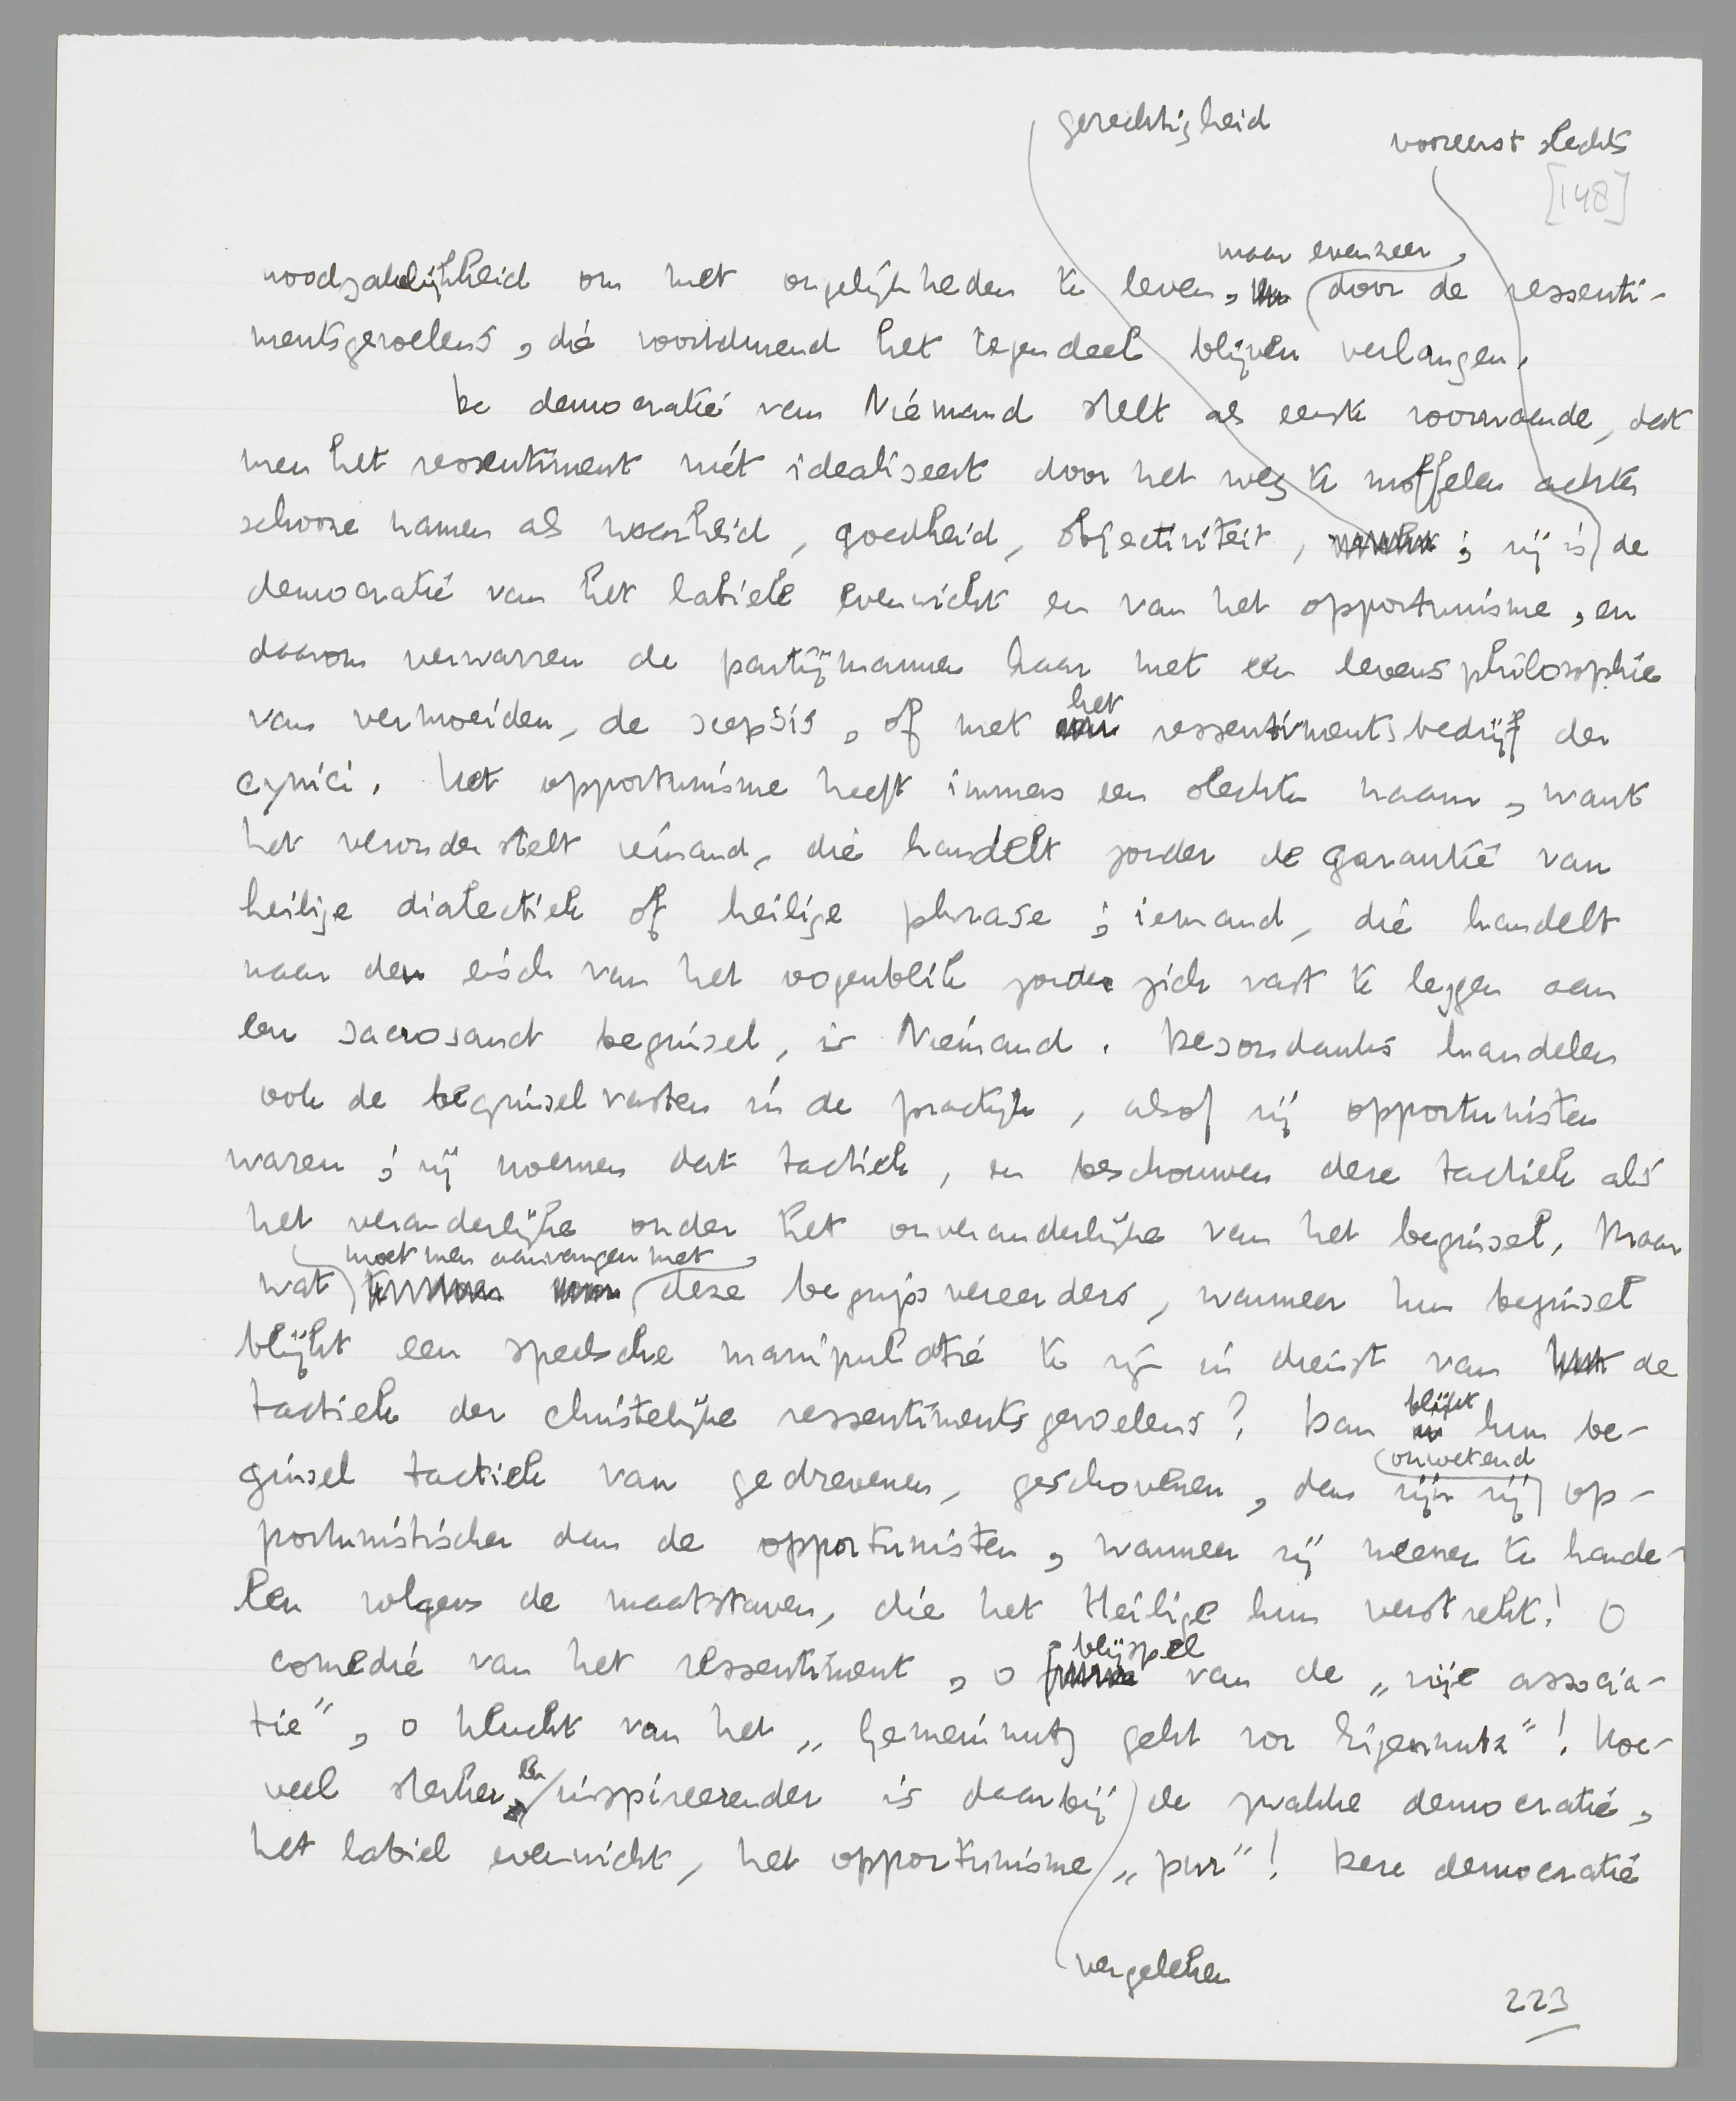 gerechtigheid
vooreerst slechts
[148]
maar evenzeer
noodzakelijkheid om met ongelijkheden te leven, door de ressenti-
mentsgevoelens, die voortdurend het tegendeel blijven verlangen.
De democratie van Niemand stelt als eerste voorwaarde, dat
men het ressentiment niét idealiseert door het weg te moffelen achter
schoone namen als waarheid, goedheid, objectiviteit, ; zij is de
democratie van het labiele evenwicht en van het opportunisme, en
daarom verwarren de partijmannen haar met een levensphilosophie
het
van vermoeiden, de scepsis, of met ressentimentsbedrijf der
cynici. Het opportunisme heeft immers een slechten naam, want
het veronderstelt iemand, die handelt zonder de garantie van
heilige dialectiek of heilige phrase; iemand, die handelt
naar den eisch van het oogenblik zonder zich vast te leggen aan
een sacrosanct beginsel, is Niemand. Desondanks handelen
ook de beginselvasten in de practijk, alsof zij opportunisten
waren; zij noemen dat tactiek, en beschouwen deze tactiek als
het veranderlijke onder het onveranderlijke van het beginsel. Maar
moet men aanvangen met
wat deze begripsvereerders, wanneer hun beginsel
blijkt een speelsche manipulatie te zijn in dienst van de
blijkt
tactiek der christelijke ressentimentsgevoelens? Dan hun be-
onwetend
ginsel tactiek van gedrevenen, geschovenen, dan zijn zij op-
portunistischer dan de opportunisten, wanneer zij meenen te hande-
len volgens de maatstaven, die het Heilige hun verstrekt! O
blijspel
comedie van het ressentiment, o van de „vrije associa-
tie”, o klucht van het „Gemeinnutz geht vor Eigennutz”! Hoe-
en
veel sterker inspireerender is daarbij de zwakke democratie,
het labiel evenwicht, het opportunisme „pur”! Deze democratie
vergeleken
223